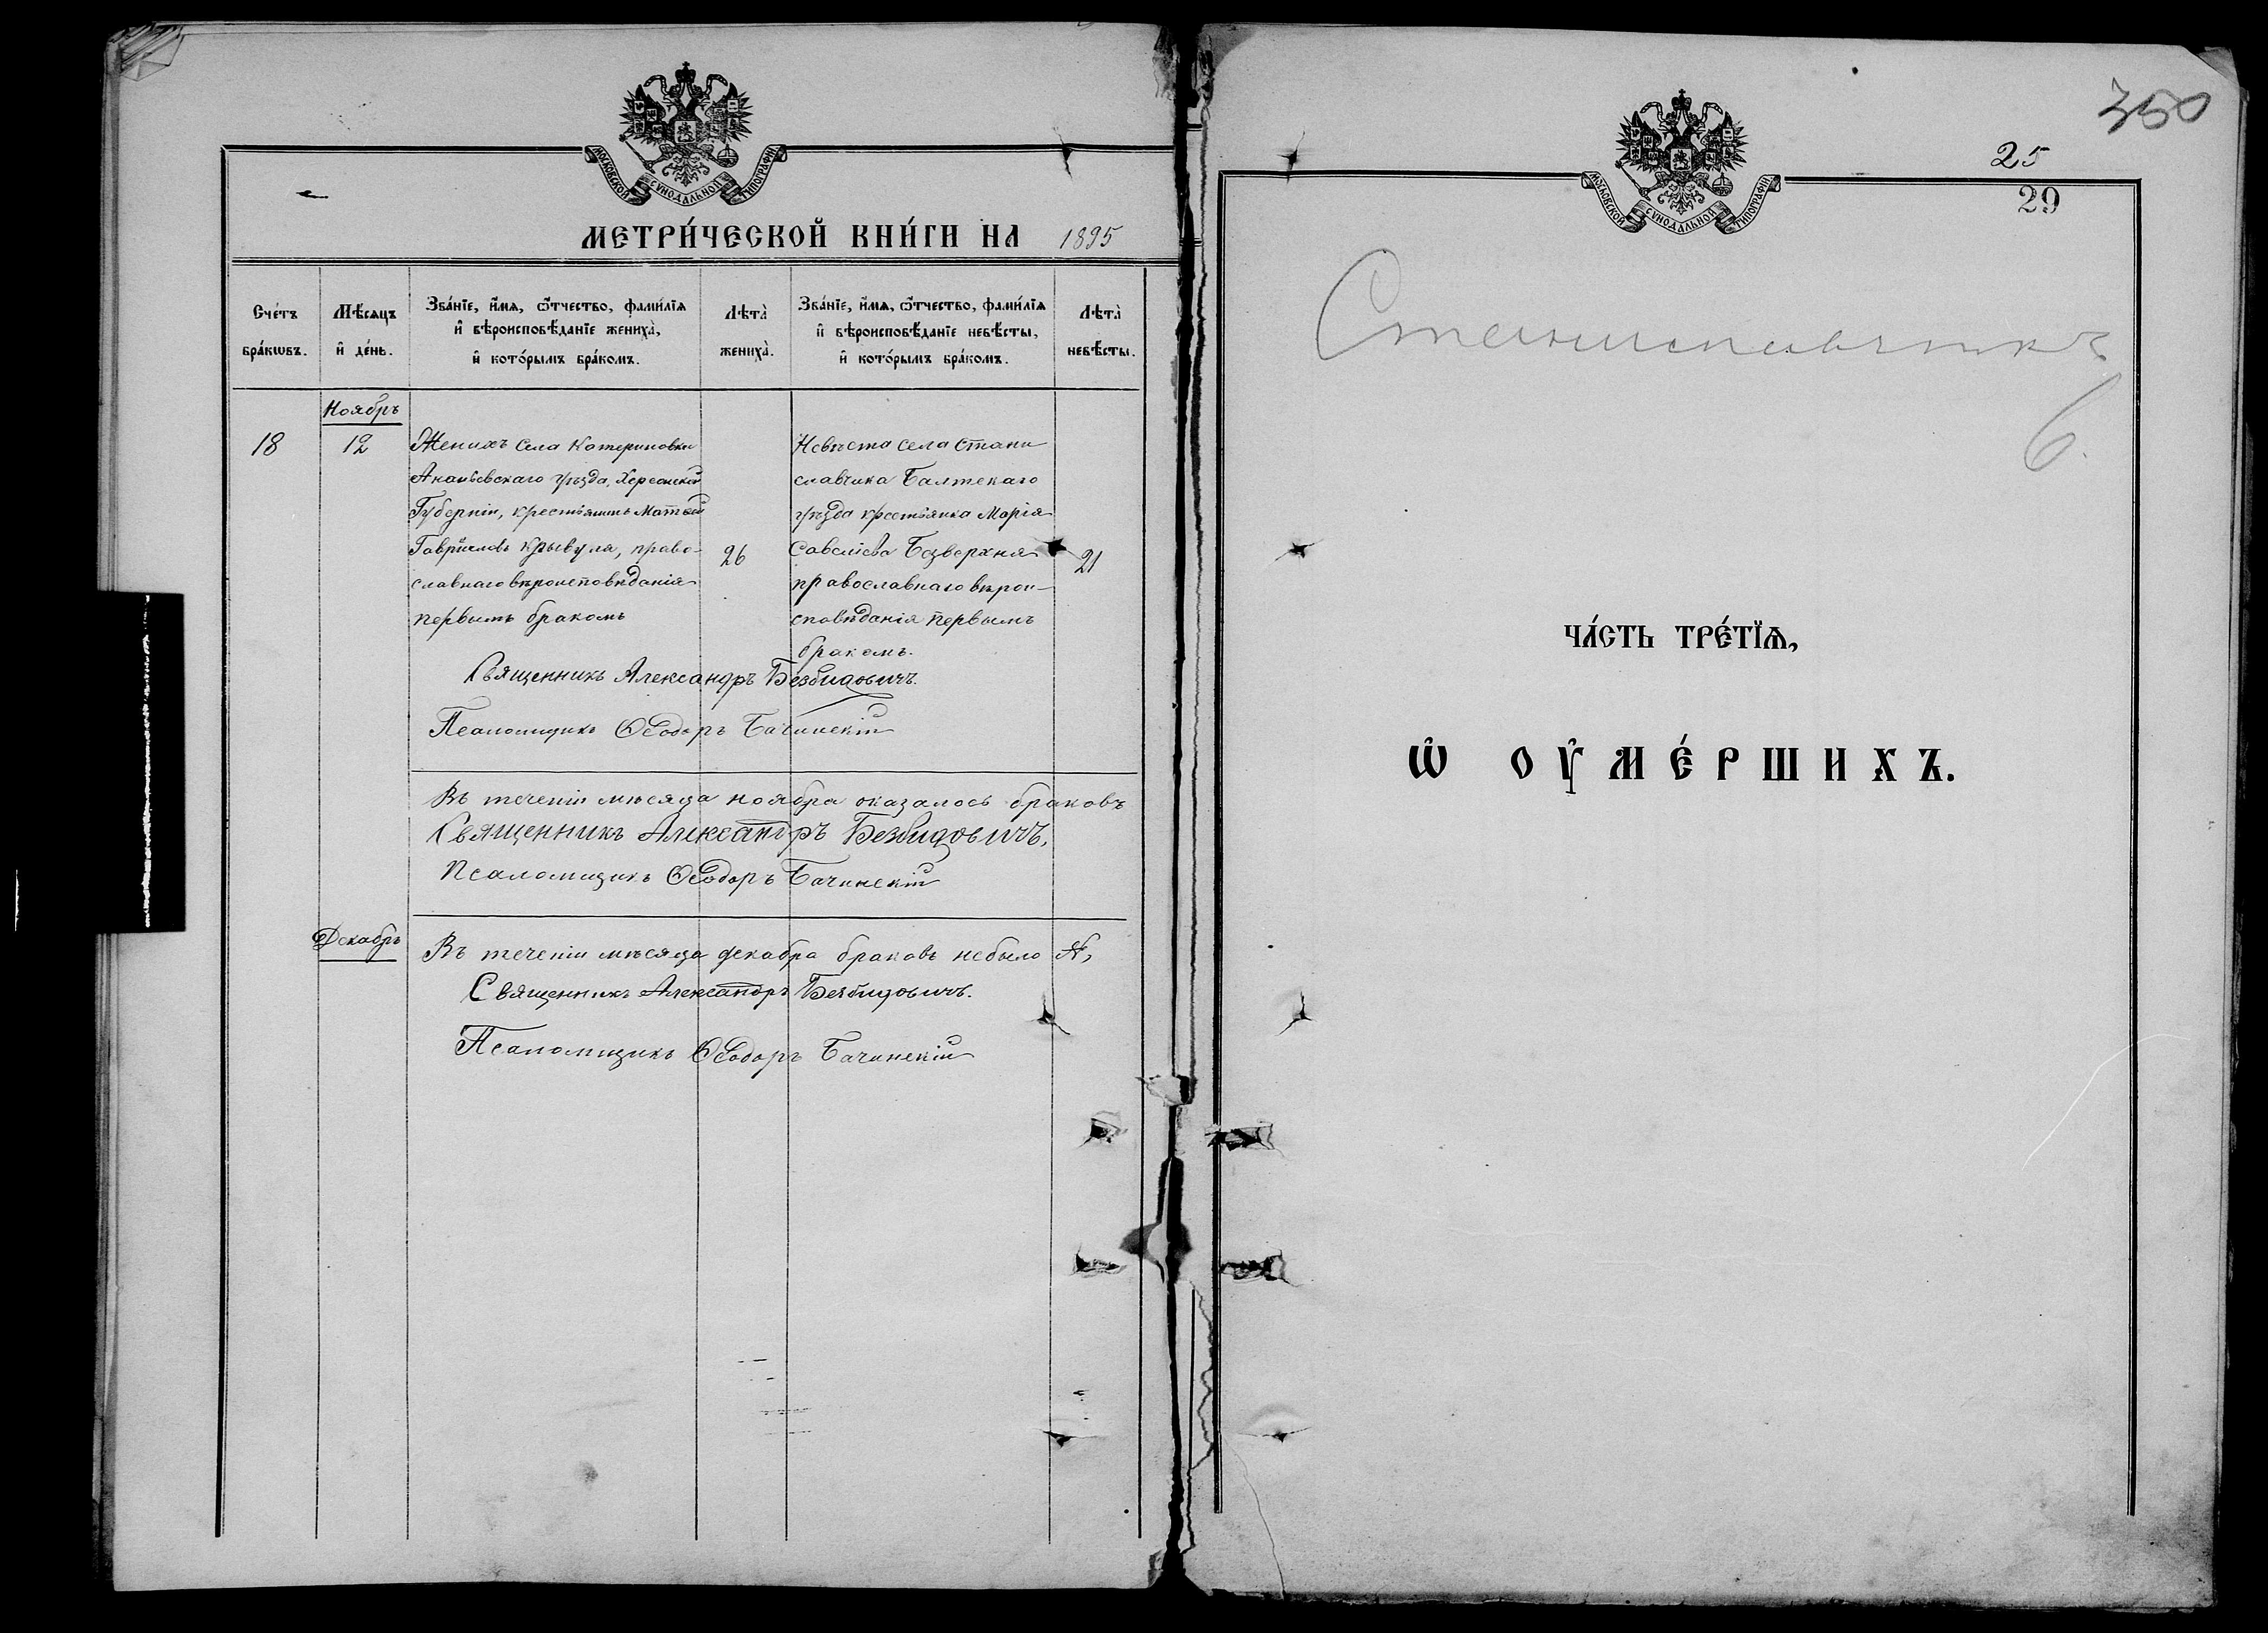 МОСКОВСКОЙ СѴНОДАЛЬНОЙ ТИПОГРАФІИ
МЕТРИ́ЧЕСКОЙ КНИ́ГИ НА 1895
Сче́тъ бра́кѡвъ.
Мѣ́сяцъ и҆ де́нь.
Зва́нїе, и҆́мѧ, ѻ҆́тчество, фами́лїѧ
и҆ вѣроисповѣ́данїе жениха̀,
и҆ кото́рымъ бра́комъ.
Лѣта̀ жениха̀.
Зва́нїе, и҆́мѧ, ѻ҆́тчество, фами́лїѧ
и҆ вѣроисповѣ́данїе невѣ́сты,
и҆ кото́рымъ бра́комъ.
Лѣта̀ невѣ́сты.
Ноябрь
18
12
Женихъ села Катериновки
Ананьевскаго уѣзда, Херсонской
Губерніи, крестьянинъ Матѳей
Гавриловъ Крывуля, право-
славнаго вѣроисповѣданія
первымъ бракомъ
26
Невѣста села Стани
славчика Балтскаго
уѣзда крестьянка Марія
Савелієва Безверхня
православнаго вѣрои-
сповѣданія первымъ
бракомъ.
21
Священникъ Александръ Безбидовичъ.
Псаломщикъ Ѳеодоръ Бачинскій
Въ теченіи мѣсяца ноября оказалось браковъ
Священникъ Александръ Безбидовичъ.
Псаломщикъ Ѳеодоръ Бачинскій
Декабрь
Въ теченіи мѣсяца декабра браковъ небыло
Священникъ Александръ Безбидовичъ.
Псаломщикъ Ѳеодоръ Бачинскій
350
25
29
МОСКОВСКОЙ СѴНОДАЛЬНОЙ ТИПОГРАФІИ
Станиславчикъ
6.
ЧА́СТЬ ТРЕ́ТЇѦ,
Ѡ҆ ОУ҆МЕ́РШИХЪ.